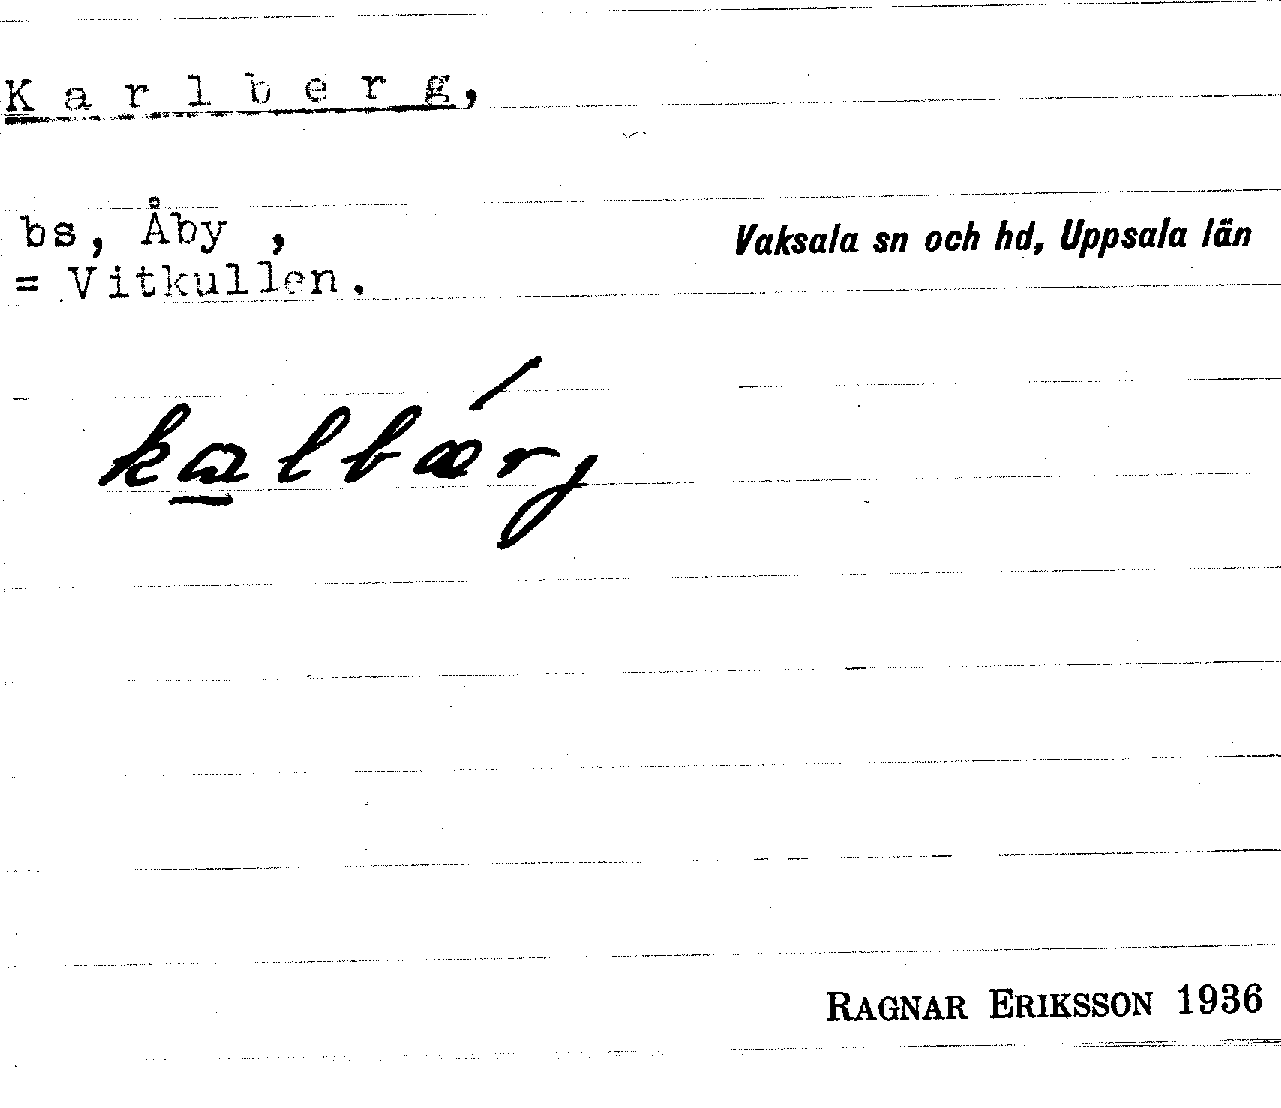 Karlberg,
bs, Åby ,
Vaksala sn och hd, Uppsala län
= Vitkullen.
kalbǽrj
RAGNAR ERIKSSON 1936